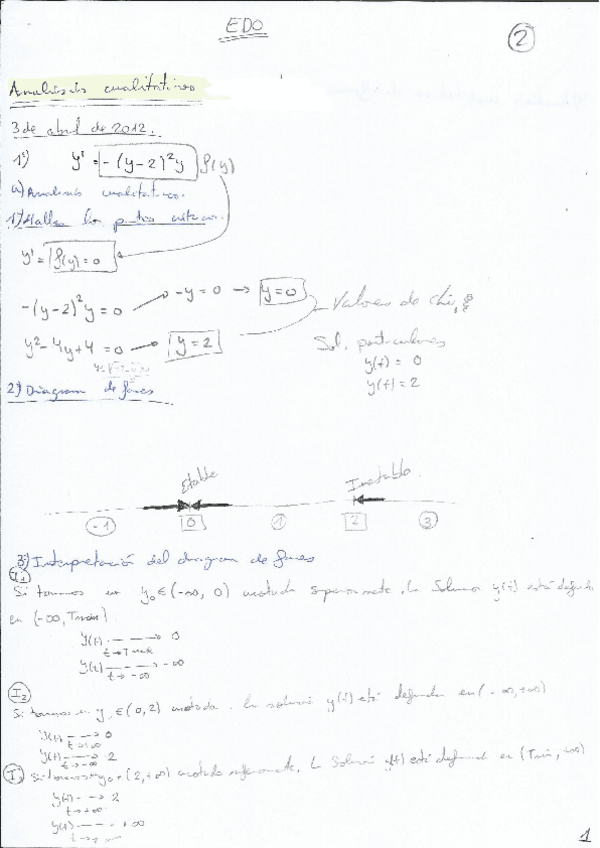 EDO
2
Analisis cualitativo
3 de abril de 2012.
1º) y' = -(y-2)²y f(y)
a) Analisis cualitativo.
1) Hallar los puntos criticos.
y' = f(y) = 0
-(y-2)²y = 0 → -y = 0 → y=0
y²-4y+4 = 0 → y=2
Valores de
Sol. particulares
y(t) = 0
y(t) = 2
2) Diagrama de fases
Estable
Inestable
-1 0 1 2 3
3) Interpretación del diagrama de fases
I1
Si tomamos un y₀ ∈ (-∞, 0) acotada superiormente, la solución y(t) está definida
en (-∞, Tmax)
y(t) → 0
t→Tmax
y(t) → -∞
t→-∞
I2
Si tomamos un y₀ ∈ (0,2) acotada, la solución y(t) está definida en (-∞, +∞)
y(t) → 0
t→+∞
y(t) → 2
t→-∞
I Si tomamos y₀ (2,+∞) acotada inferiormente, la solución y(t) está definida en (Tmin, +∞)
y(t) → 2
t→+∞
y(t) → +∞
1